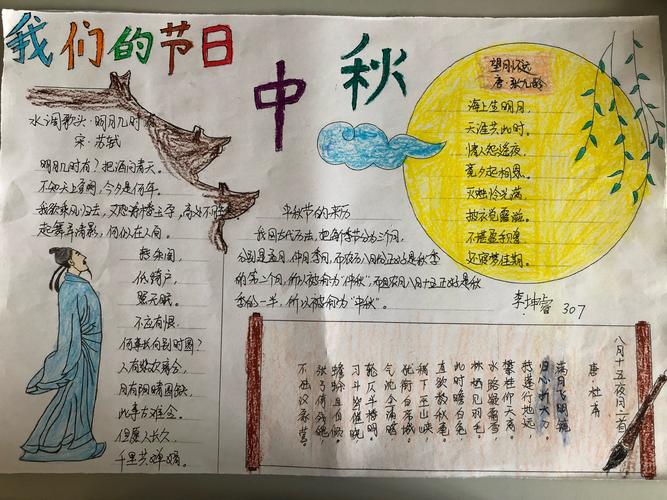 我们的节日
中秋
水调歌头·明月几时有
宋·苏轼
明月几时有?把酒问青天。
不知天上宫阙,今夕是何年。
我欲乘风归去,又恐琼楼玉宇,高处不胜寒
起舞弄清影,何似在人间。
转朱阁,
低绮户,
照无眠。
不应有恨,
何事长向别时圆?
人有悲欢离合,
月有阴晴圆缺,
此事古难全。
但愿人长久,
千里共婵娟。
中秋节的来历
我国古代历法,把每个季节分为三个月,
分别是孟月、仲月、季月,
的第二个月,所以被称为“仲秋”,
季的一半,所以被称为“中秋”。
望月怀远
唐·张九龄
海上生明月,
天涯共此时。
情人怨遥夜,
竟夕起相思。
灭烛怜光满,
披衣觉露滋。
不堪盈手赠,
还寝梦佳期。
李坤睿 307
八月十五夜月二首
唐·杜甫
满月飞明镜
归心折大刀
转蓬行地远
攀桂仰天高
水路疑霜雪
林栖见羽毛
此时瞻白兔
直欲数秋毫
稍下巫山峡
犹衔白帝城
气沈全浦暗
轮仄半楼明
刁斗皆催晓
蟾蜍且自倾
张弓倚残魄
不独汉家营